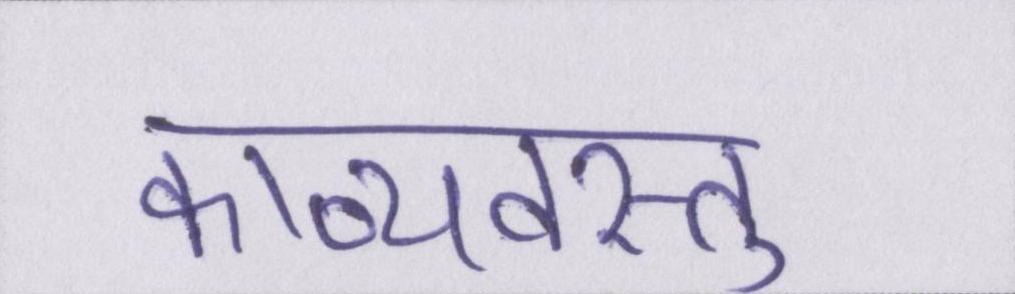 काव्यवस्तु